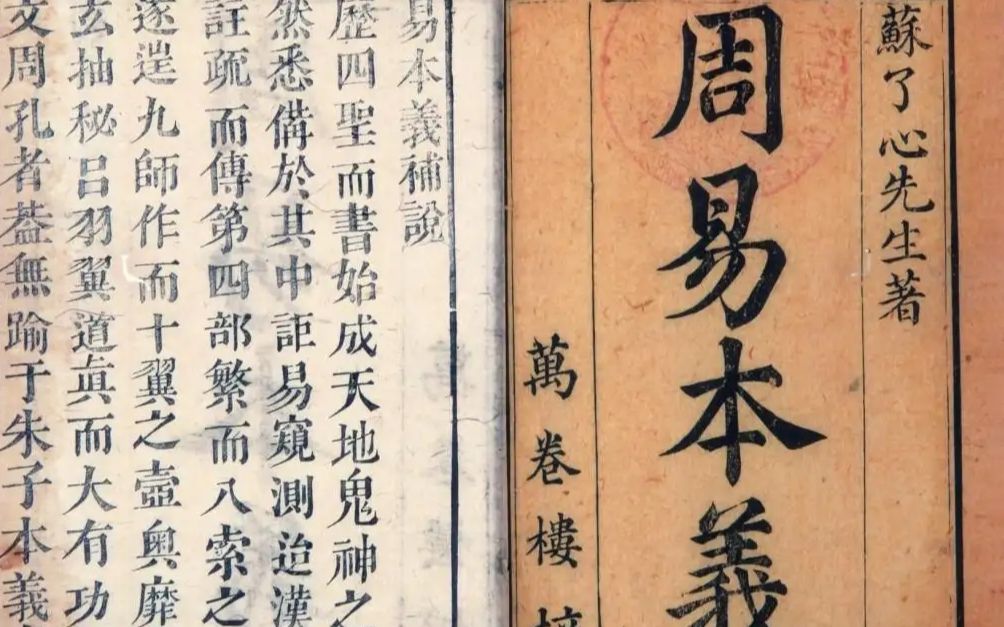 蘇了心先生著
周易本義
萬卷樓
易本義補說
歷四聖而書始成天地鬼神之
然悉備於其中詎易窺測迨漢
註疏而傳第四部繁而八索之
遂逞九師作而十翼之壼奧靡
玄抽秘呂羽翼道眞而大有功
文周孔者葢無踰于朱子本義